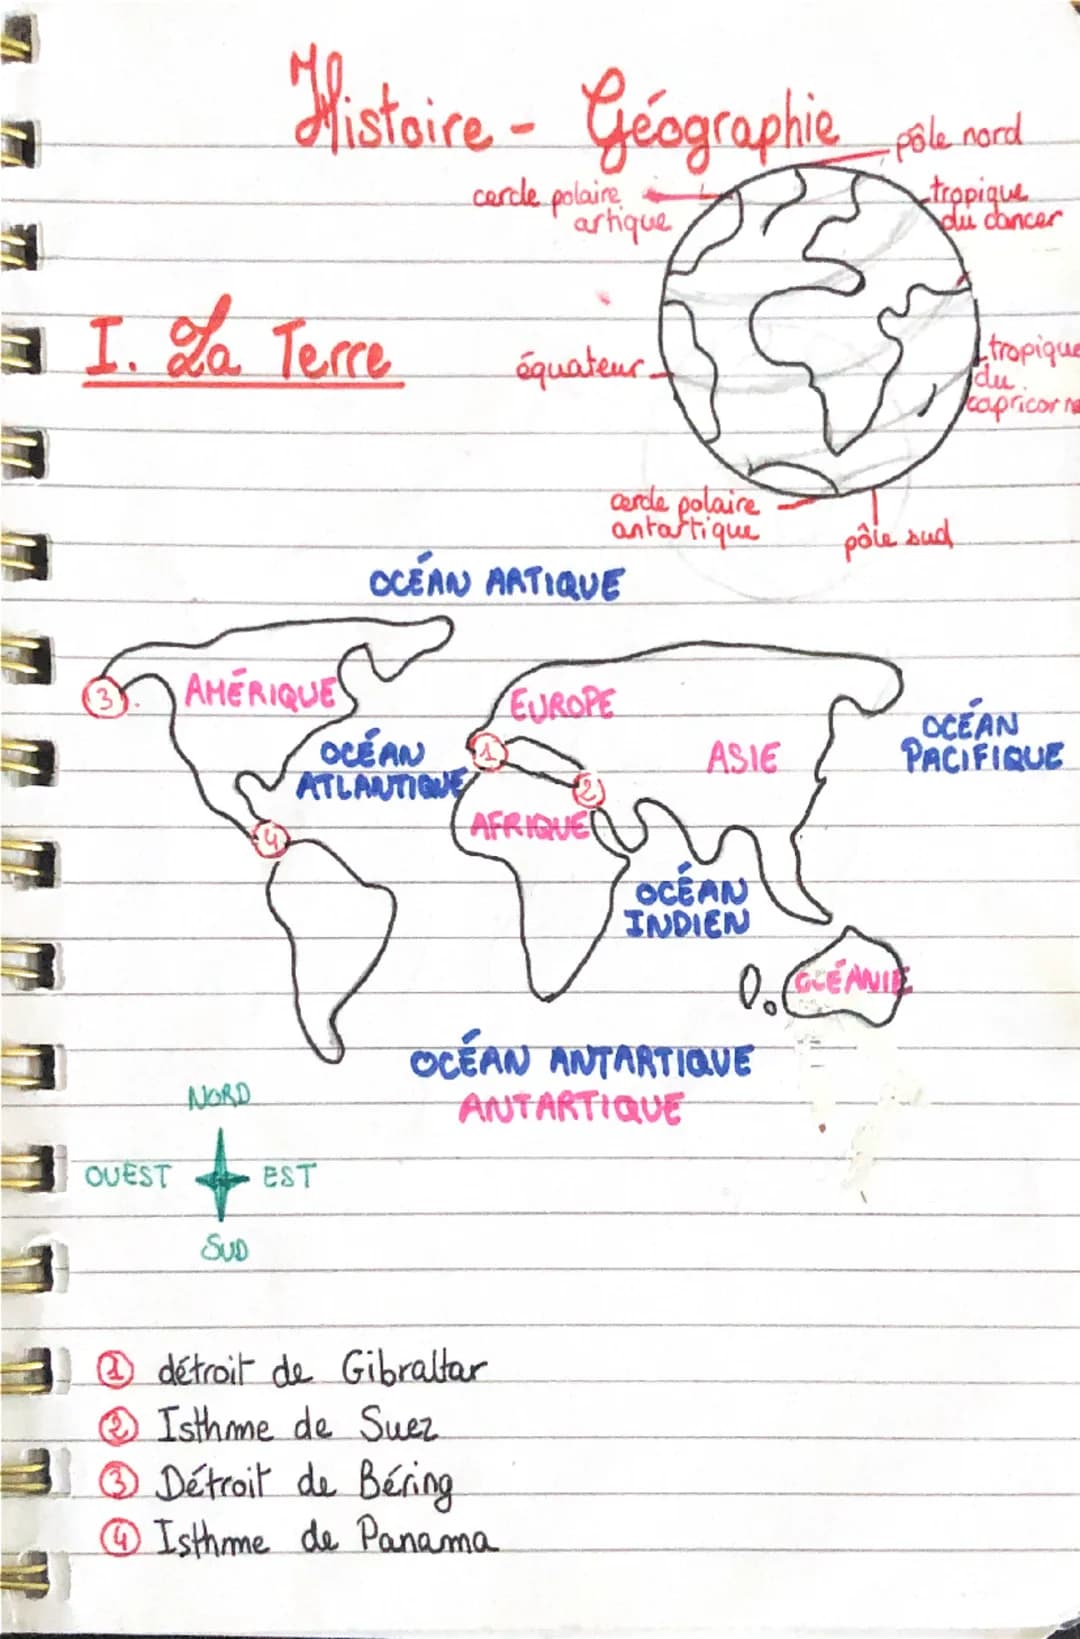 Histoire - Géographie
pôle nord
cercle polaire
artique
tropique
du cancer
I. La Terre
équateur
tropique
du
capricorne
cercle polaire
antartique
pôle sud
OCÉAN ARTIQUE
3
AMÉRIQUE
EUROPE
OCÉAN
PACIFIQUE
OCÉAN
ATLANTIQUE
1
ASIE
2
AFRIQUE
4
OCÉAN
INDIEN
OCÉANIE
OCÉAN ANTARTIQUE
ANTARTIQUE
NORD
OUEST EST
SUD
1 détroit de Gibraltar
2 Isthme de Suez
3 Détroit de Béring
4 Isthme de Panama